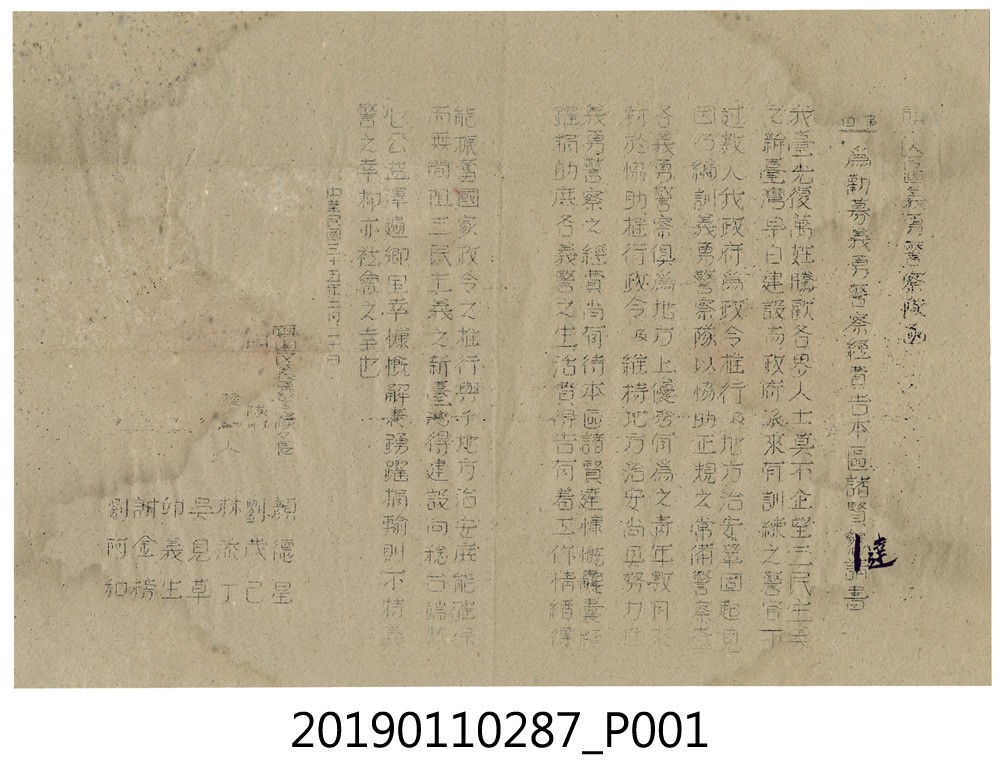 義勇警察隊函
為勸募義勇警察經費告本區諸賢達書
我臺光復萬姓騰歡各界人士莫不企望三民主義
之新臺灣早日建設而政府派來有訓練之警官不
過數人我政府為政令推行及地方治安鞏固起見
因乃編訓義勇警察隊以協助正規之常備警察查
各義勇警察俱為地方上優秀有為之青年數月來
對於協助推行政令及維持地方治安尚具努力惟
義勇警察之經費尚有待本區諸賢達慷慨解囊踴
躍捐助庶各義警之生活費得告有着工作情緒得
能振奮國家政令之推行與乎地方治安庶能確保
而無間阻三民主義之新臺灣得建設向
心公益澤遍鄉里幸慷慨解囊踴躍捐輸則不特義
警之幸抑亦社會之幸也
中華民國三十五年三月二十日
顏德星
劉茂己
林添丁
吳見草
卯義生
謝金榜
劉阿和
20190110287_P001